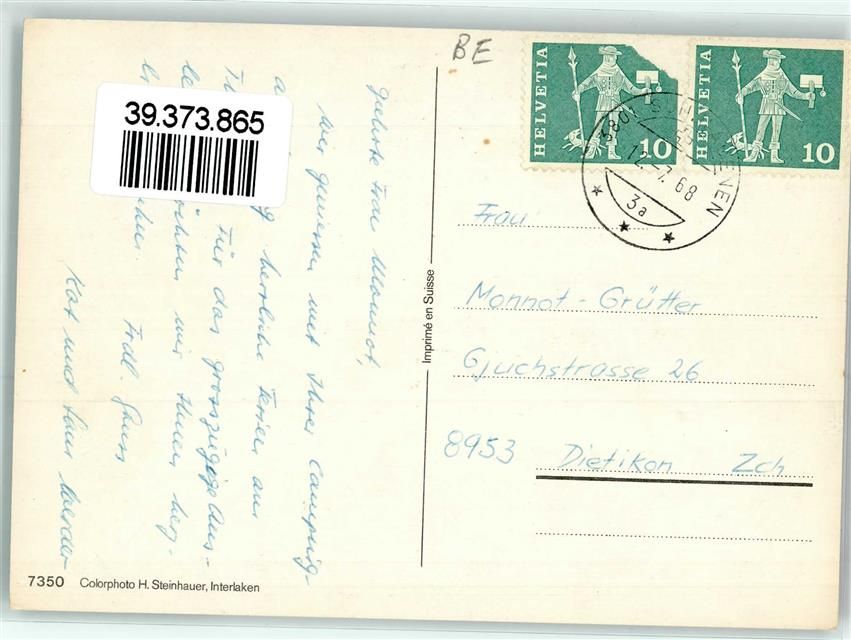 BE
39.373.865
HELVETIA
10
HELVETIA
10
3801
12. 7. 68
3a
Geehrte Frau Monnot,
Wir geniessen mit Ihrer Camping-
herrliche Ferien am
Für das grosszügige Aus-
möchten wir Ihnen herz-
Frdl. Gruss
Kat und Hans
Imprimé en Suisse
Frau
Monnot - Grütter
Gjuchstrasse 26
8953 Dietikon Zch
7350 Colorphoto H. Steinhauer, Interlaken